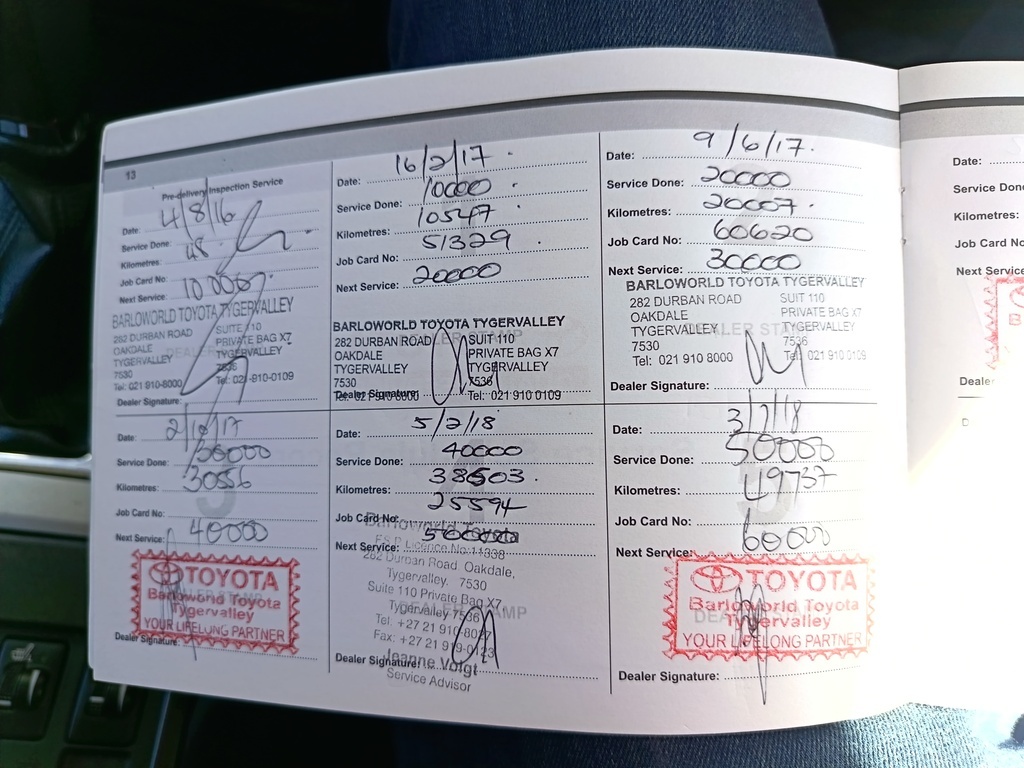 13
Pre-delivery Inspection Service
Date: 4/8/16
Service Done:
Kilometres: 48
Job Card No:
Next Service: 10 000
BARLOWORLD TOYOTA TYGERVALLEY
282 DURBAN ROAD SUITE 110
OAKDALE PRIVATE BAG X7
TYGERVALLEY TYGERVALLEY
7530 7536
Tel: 021 910-8000 Tel: 021-910-0109
Dealer Signature:
Date: 16/2/17.
Service Done: 10000
Kilometres: 10547
Job Card No: 51329
Next Service: 20000
BARLOWORLD TOYOTA TYGERVALLEY
282 DURBAN ROAD SUIT 110
OAKDALE PRIVATE BAG X7
TYGERVALLEY TYGERVALLEY
7530 7536
Tel: 021 910 8000 Tel: 021 910 0109
Dealer Signature:
Date: 9/6/17.
Service Done: 20000
Kilometres: 20007.
Job Card No: 60620
Next Service: 30000
BARLOWORLD TOYOTA TYGERVALLEY
282 DURBAN ROAD SUIT 110
OAKDALE PRIVATE BAG X7
TYGERVALLEY DEALER STAMP TYGERVALLEY
7530 7536
Tel: 021 910 8000 Tel: 021 910 0109
Dealer Signature:
Date: 2/10/17
Service Done: 30000
Kilometres: 30556
Job Card No:
Next Service: 40000
TOYOTA
Barloworld Toyota
Tygervalley
YOUR LIFELONG PARTNER
Dealer Signature:
Date: 5/2/18
Service Done: 40000
Kilometres: 38503.
Job Card No: 25594
Next Service: 50000
Barloworld Toyota
F.S.P. Licence No: 11338
282 Durban Road Oakdale,
Tygervalley. 7530
Suite 110 Private Bag X7
Tygervalley 7536
Tel: +27 21 910
Fax: +27 21 910
Jeanne Voigt
Service Advisor
Dealer Signature:
Date: 3/7/18
Service Done: 50000
Kilometres: 49737
Job Card No:
Next Service: 60000
TOYOTA
Barloworld Toyota
Tygervalley
YOUR LIFELONG PARTNER
Dealer Signature:
Date:
Service Done
Kilometres:
Job Card No
Next Service
Dealer